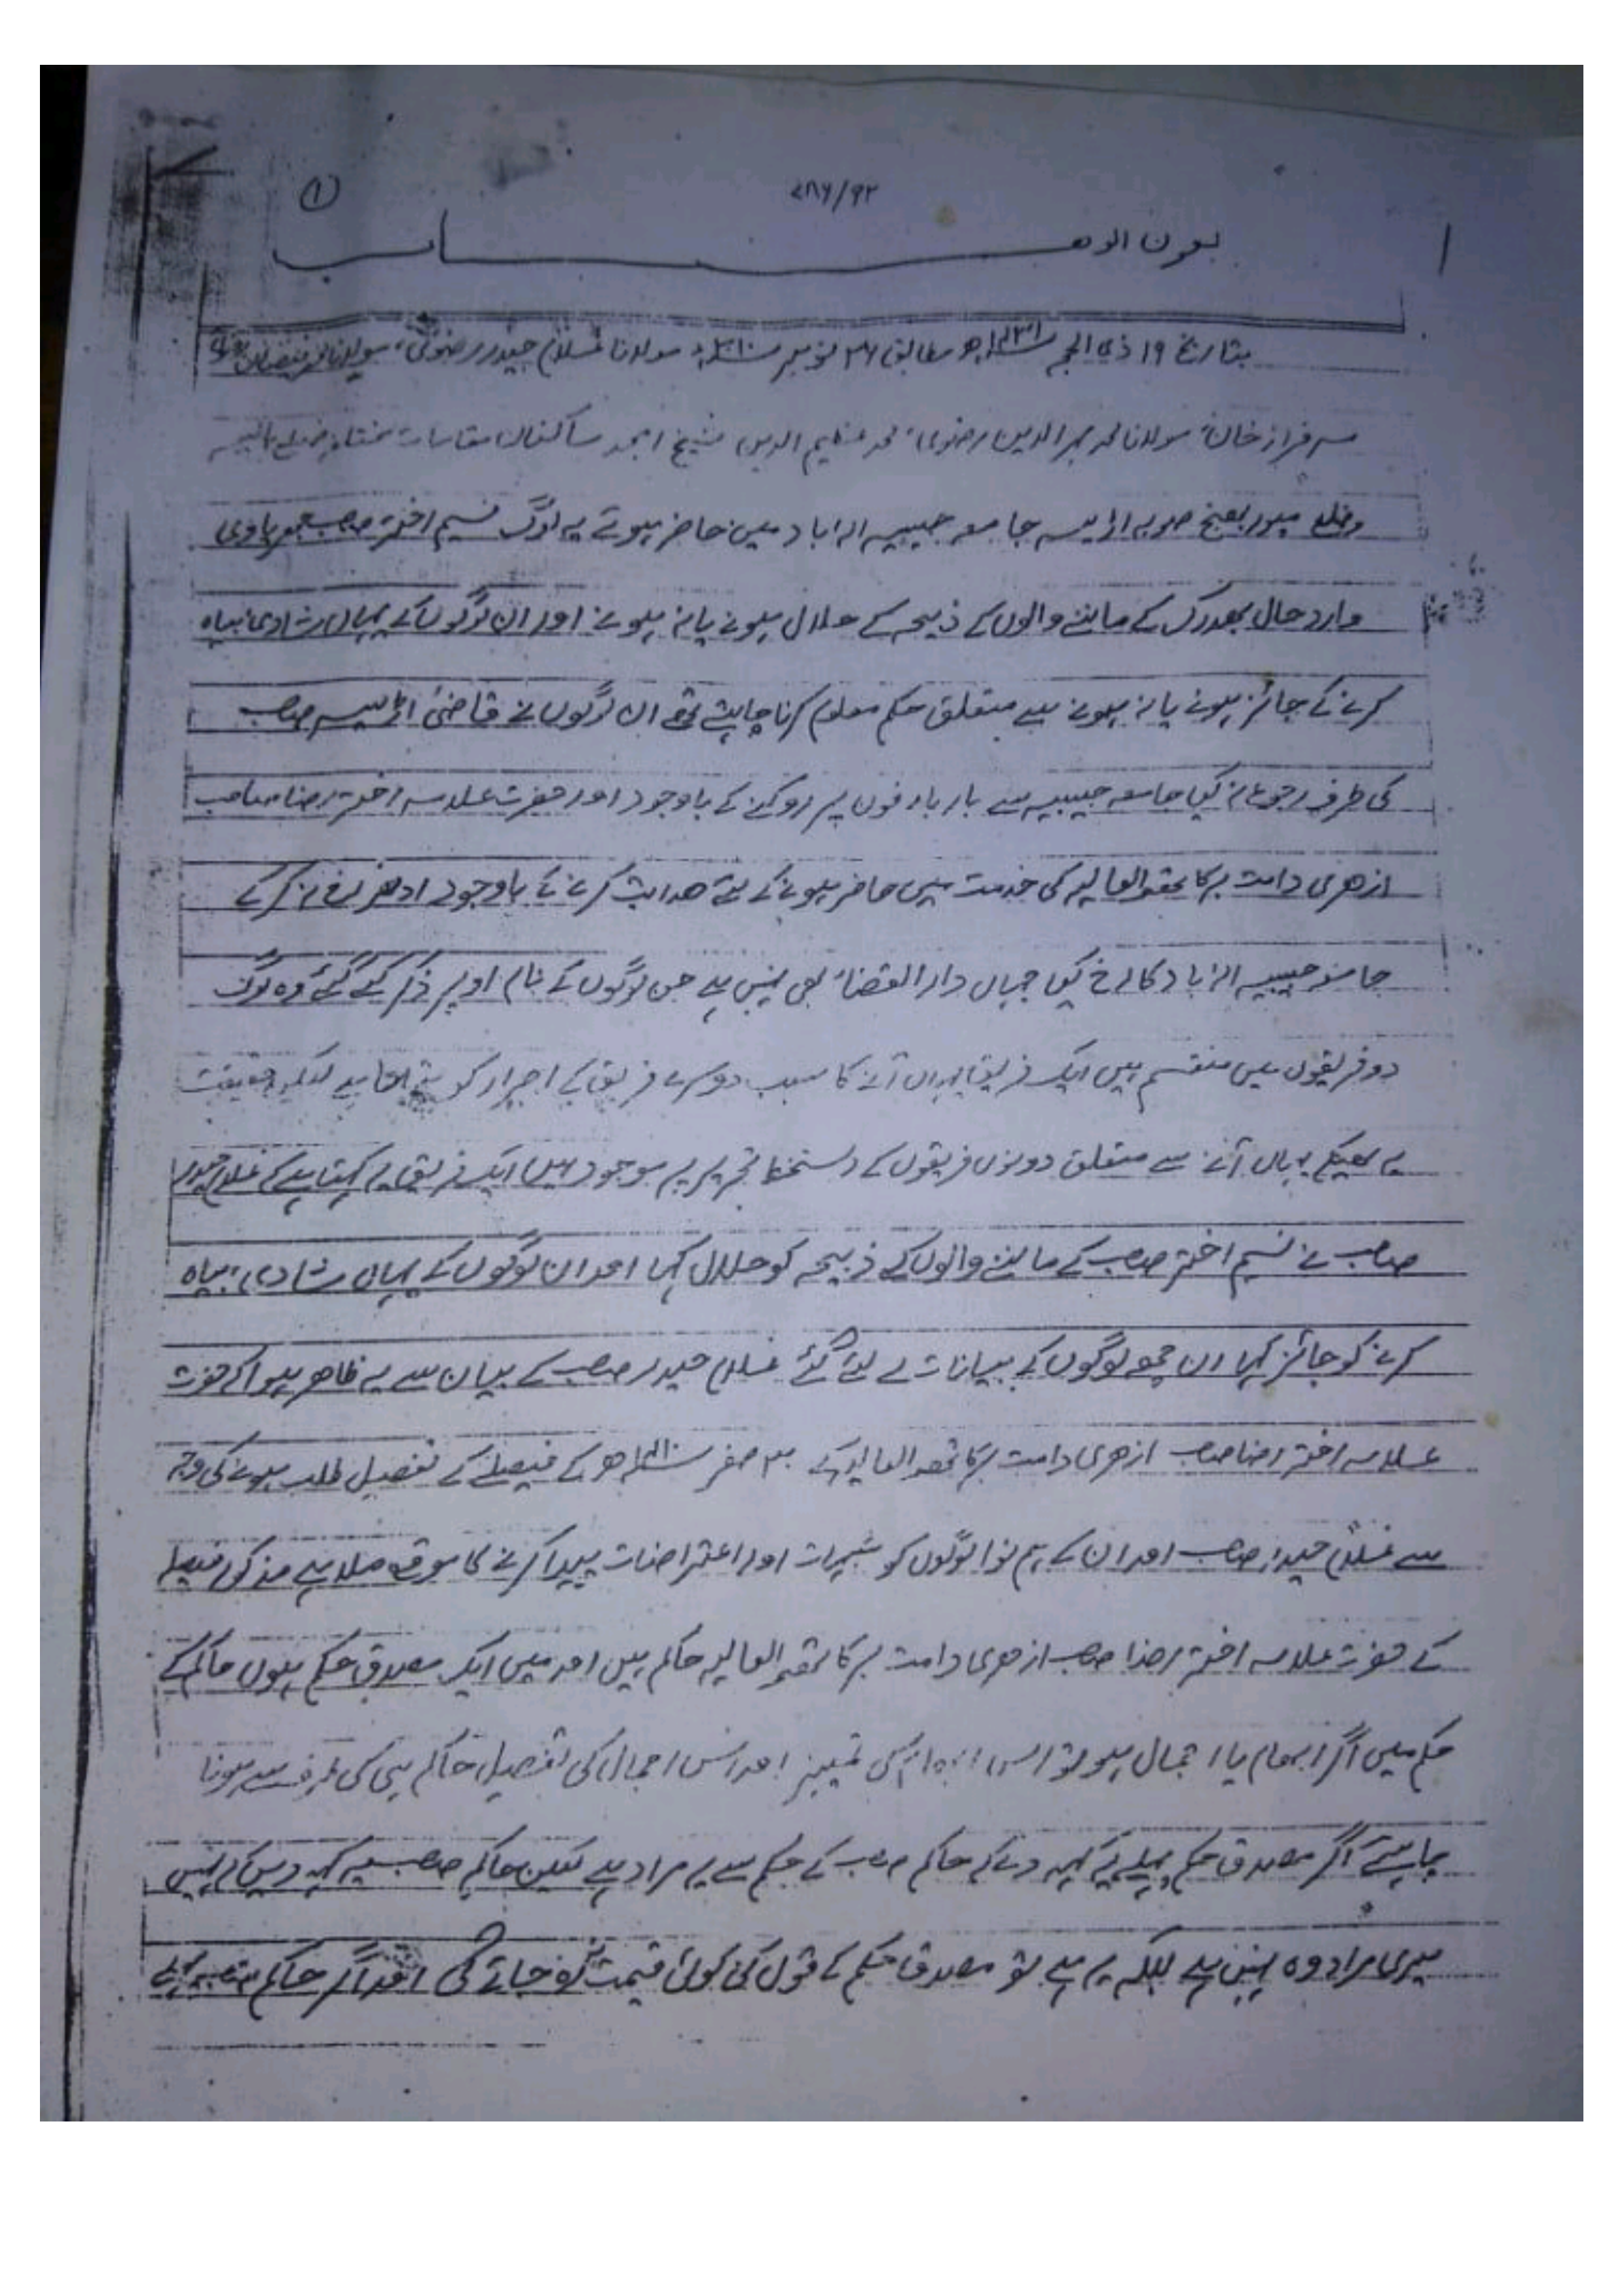 ۷۸۶/۹۲
①
بعون الوهـــــــاب
بتاریخ ۱۹ ذی الحجہ ۱۴۳۱ھ مطابق ۲۶ نومبر ۲۰۱۰ء مولانا غلام حیدر رضوی، مولانا
سرفراز خان، مولانا محمد رضوی، محمد عظیم الدین شیخ امجد ساکنان مقامات ضلع
وضلع میوربھنج صوبہ اڑیسہ جامعہ حبیبیہ الہ اباد میں حاضر ہوئے یہ لوگ نسیم اختر صاحب
وارد حال بھدرک کے ماننے والوں کے ذبیحہ کے حلال ہونے یا نہ ہونے اور ان لوگوں کے یہاں شادی بیاہ
کرنے کے جائز ہونے یا نہ ہونے سے متعلق حکم معلوم کرنا چاہتے تھے ان لوگوں نے قاضئ اڑیسہ صاحب
کی طرف رجوع نہ کیا جامعہ حبیبیہ سے بار بار فون پر روکنے کے باوجود اور حضرت علامہ اختر رضا صاحب
ازھری دامت برکاتھم العالیہ کی خدمت میں حاضر ہونے کے لئے ھدایت کرنے کے باوجود ادھر رخ نہ کر کے
جامعہ حبیبیہ الہ اباد کا رخ کیا جہاں دار القضاء بھی نہیں ہے جن لوگوں کے نام اوپر ذکر کئے گئے وہ لوگ
دو فریقوں میں منقسم ہیں ایک فریق یہاں آنے کا سبب دوسرے فریق کے اصرار کو حقیقت
یہ ھیکہ یہاں آنے سے متعلق دونوں فریقوں کے دستخط تحریر پر موجود ہیں ایک فریق یہ کہتا ہے کہ غلام حیدر
صاحب نے نسیم اختر صاحب کے ماننے والوں کے ذبیحہ کو حلال کہا اور ان لوگوں کے یہاں شادی بیاہ
کرنے کو جائز کہا ان چھ لوگوں کے بیانات لے لئے گئے غلام حیدر صاحب کے بیان سے یہ ظاھر ہوا کہ حضرت
علامہ اختر رضا صاحب ازھری دامت برکاتھم العالیہ کے صفر ھ کے فیصلے کے تفصیل طلب ہونے کی وجہ
سے غلام حیدر صاحب اور ان کے ہم نوا لوگوں کو شبہات اور اعتراضات پیدا کرنے کا موقع ملا ہے فیصلہ
کے حضرت علامہ اختر رضا صاحب ازھری دامت برکاتھم العالیہ حاکم ہیں اور میں ایک مصدق حکم ہوں حاکم کے
حکم میں اگر ابھام یا اجمال ہو تو اس ابھام کی تمییز اور اس اجمال کی تفصیل حاکم ہی کی طرف سے ہونا
چاہئے اگر مصدق حکم پہلے یہ کہہ دے کہ حاکم صاحب کے حکم سے یہ مراد ہے لیکن حاکم صاحب یہ کہہ دیں کہ نہیں
میری مراد وہ نہیں ہے بلکہ یہ ہے تو مصدق حکم کے قول کی کوئی قیمت جائے گی اور اگر حاکم صاحب